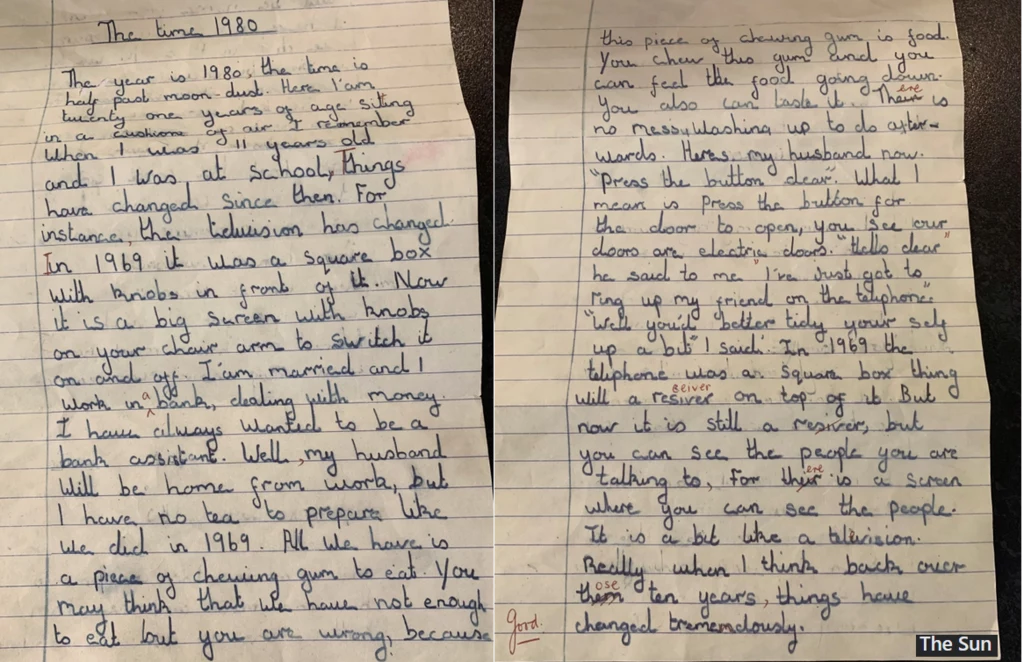 The time 1980
The year is 1980, the time is
half past moon-dust. Here I'am
twenty one years of age siting
in a cushione of air I remember
When I was 11 years old
and I was at school, Things
have changed since then. For
instance, the television has changed.
In 1969 it was a square box
with knobs in front of it. Now
it is a big screen with knobs
on your chair arm to switch it
on and off. I'am married and I
work in a bank, dealing with money.
I have always wanted to be a
bank assistant. Well, my husband
will be home from work, but
I have no tea to prepare like
we did in 1969. All we have is
a piece of chewing gum to eat. You
may think that we have not enough
to eat but you are wrong, because
this piece of chewing gum is food.
You chew this gum and you
can feel the food going down.
You also can taste it. Their ere is
no messy washing up to do after-
wards. Heres, my husband now.
"Press the button dear". What I
mean is press the button for
the door to open, you see our
doors are electric doors. "Hello dear"
he said to me "I've just got to
ring up my friend on the telephone".
"Well you'd better tidy your self
up a bit" I said. In 1969 the
telephone was a square box thing
ceiver
will a resiver on top of it. But
now it is still a resiver, but
you can see the people you are
talking to, For their ere is a screen
where you can see the people.
It is a bit like a television.
Really when I think back over
them ose ten years, things have
changed trememdously.
Good.
The Sun